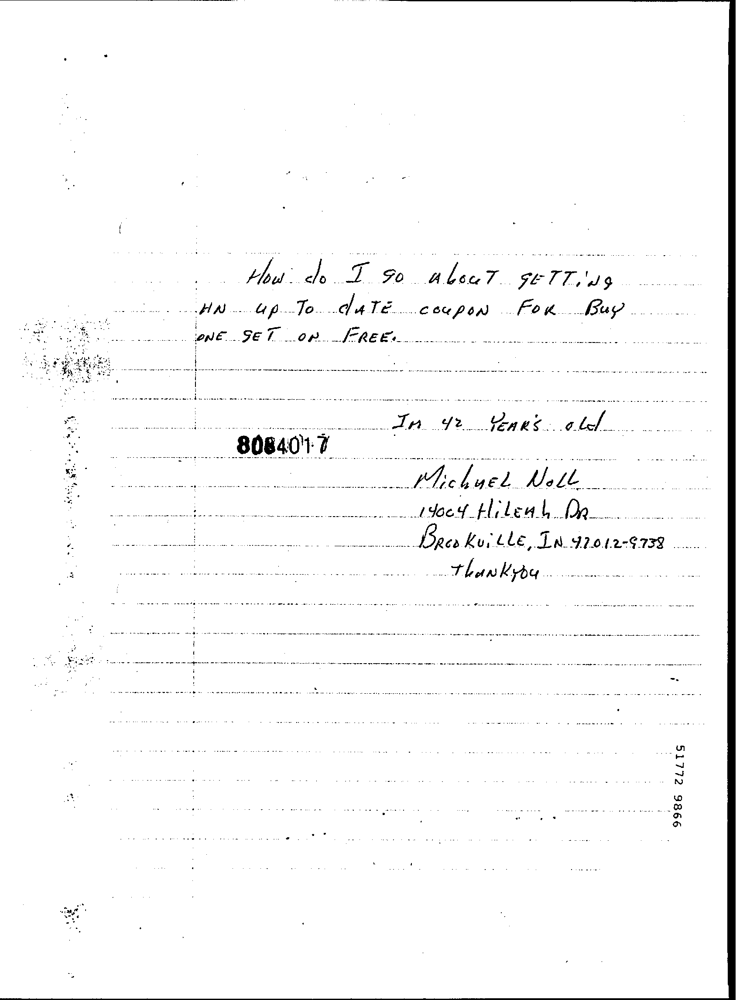 How do I go about getting
an up to date coupon for Buy
one get on Free.
Im 42 year's old
8084017
Michael Noll
14004 Hileah Dr
Brookville, IN 47012-9738
thankyou
51772 9866